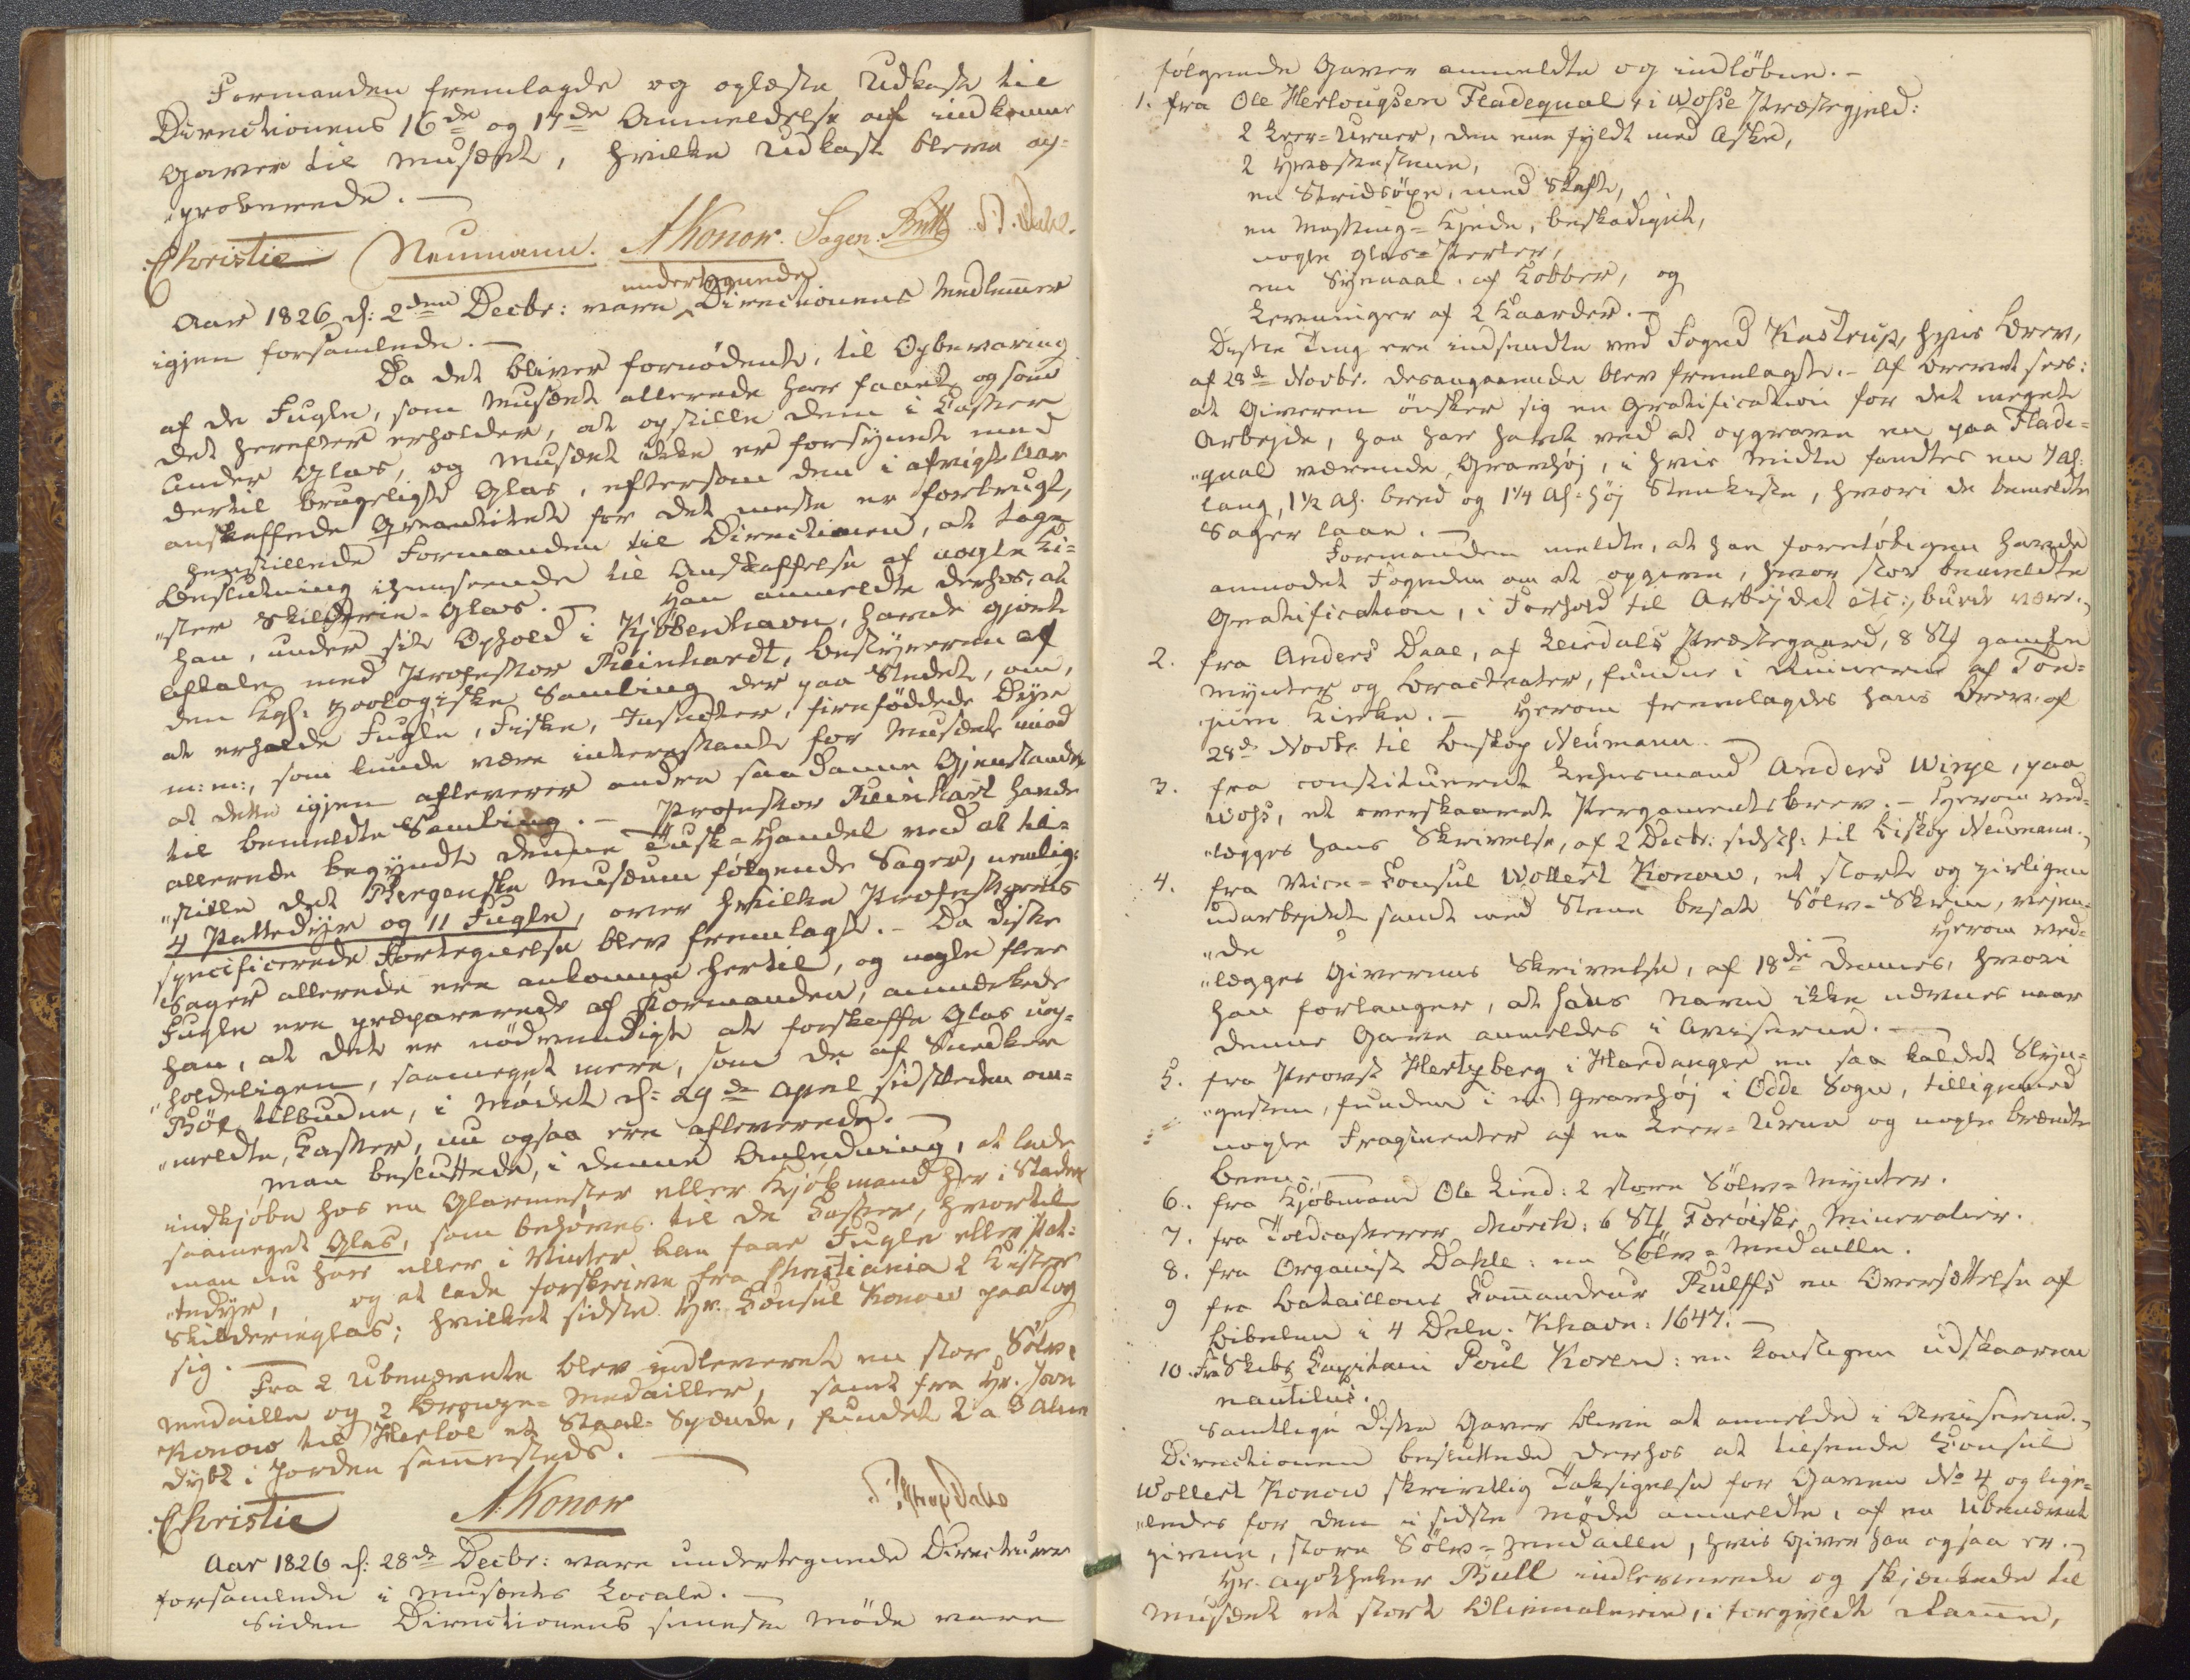 Formanden fremlagde og oplæste Udkast til
Directionens 16de og 17de Anmeldelse af indkomne
Gaver til Musæet, hvilke Udkast bleve ap-
"proberede. —
Christie Neumann. A Konow. Sagen. Bull
undertegnede
Aar 1826 d: 2den Decbr: vare Directionens Medlemmer
igjen forsamlede. —
Da det bliver fornødent, til Opbevaring
af de Fugle, som Musæet allerede har faaet og som
det herefter erholder, at opstille dem i Casser
under Glas, og Musæet ikke er forsynet med
dertil brugeligt Glas, eftersom den i afvigte Aar
anskaffede Qvantitet for det meste er forbrugt,
henstillede Formanden til Directionen, at tage
Beslutning ihenseende til Anskaffelse af nogle Ki-
"ster Skilderie-Glas. — Han anmeldte derhos, at
han, under sit Ophold i Kjöbenhavn, havde gjort
Aftale med Professor Reinhardt, Bestyreren af
den Kgl: zoologiske Samling der paa Stedet, om,
at erholde Fugle, Fiske, Insecter, firefødde Dyr
m: m:, som kunde være interessante for Musæet imod
at dette igjen afleverer andre saadanne Gjenstande
til bemeldte Samling. — Professor Reinhart havde
allerede begyndt denne Tusk-Handel ved at til-
"stille det Bergenske Musæum følgende Sager, nemlig:
4 Pattedyr og 11 Fugle, over hvilke Professorens
specificerede Fortegnelse blev fremlagt. — Da disse
Sager allerede ere ankomne hertil, og nogle flere
Fugle ere præparerede af Formanden, anmærkede
han, at det er nödvendigt at forskaffe Glas uop-
"holdeligen, saameget mere, som de af Snedker
Böe tilbudne, i Mødet d: 29de April sidstleden om-
"meldte, Casser, nu ogsaa ere afleverede. —
Man besluttede, i denne Anledning, at lade
indkjøbe hos en Glarmester eller Kjøbmand her i Staden
saameget Glas, som behøves til de Casser, hvortil
man nu har eller i Vinter kan faae Fugle eller Pat-
"tedyr, og at lade forskrive fra Christiania 2 Kister
Skilderieglas; hvilket sidste Hr. Consul Konow paatog
sig. —
Fra 2 Ubenævnte blev indleveret en stor Sølv-
Medaille og 2 Bronze-Medailler, samt fra Hr. Jørn
Konow til Herloe et Staal-Spænde, fundet 2 a 3 Alen
dybt i Jorden sammesteds. —
Christie A Konow
Aar 1826 d: 28de Decbr: vare undertegnede Directeurer
forsamlede i Musæets Locale. —
Siden Directionens seneste Møde vare
følgende Gaver anmeldte og indløbne. —
1. fra Ole Herlougsen Fladequal, i Wosse Præstegjeld:
2 Leer-Urner, den ene fyldt med Aske,
2 Hvæssestene,
en Stridsöxe, med Skaft,
en Messing-Kjede, beskadiget,
nogle Glas-Perler,
en Synaal af Kobber, og
Levninger af 2 Kaarder. —
Disse Ting ere indsendte ved Foged Kastrup, hvis Brev,
af 28de Novbr. desangaaende blev fremlagt. — Af Brevet sees:
at Giveren ønsker sig en Gratification for det meget
Arbejde, han har havt ved at opgrave en paa Flade-
"qual værende Gravhøj, i hvis Midte fandtes en 7 Al:
lang, 1½ Al. bred og 1¼ Al: høj Steenkiste, hvori de bemeldte
Sager laae. —
Formanden meldte, at han foreløbigen havde
anmodet Fogeden om at opgive, hvor stor bemeldte
Gratification, i Forhold til Arbejdet etc:, burde være. —
2. fra Anders Daae, af Leirdals Præstegaard, 8 St gamle
Mynter og Bracteater, fundne i Ruinerne af Ton-
"jum Kirke. — Herom fremlagdes hans Brev af
28de Novbr. til Biskop Neumann. —
3. fra constitueret Lehnsmand Anders Winje, paa
Woss, et overskaaret Pergamentsbrev. — Herom ved-
"lægges hans Skrivelse, af 2 Decbr: sidstl: til Biskop Neumann. —
4. fra Vice-Consul Wollert Konow, et stort og zirligen
udarbejdet samt med Stene besat Sølv-Skrin, vejen-
"de Herom ved-
"lægges Giverens Skrivelse, af 18de dennes, hvori
han forlanger, at hans Navn ikke nævnes naar
denne Gave anmeldes i Aviserne. —
5. fra Provst Hertzberg i Hardanger en saa kaldet Slyn-
"gesten, funden i en Gravhøj i Odde Sogn, tilligemed
nogle Fragmenter af en Leer-Urne og nogle brændte
Been. —
6. fra Kjøbmand Ole Lied: 2 store Sølv-Mynter.
7. fra Toldcasserer Mörch: 6 St Færøiske Mineralier.
8. fra Organist Dahle: en Sølv-Medaille.
9 fra Bataillons Commandeur Rulffs en Oversættelse af
Bibelen i 4 Dele. Khavn: 1647. —
10. Fra Skibs Capitain Poul Koren: en konstigen udskaaren
nautilus.
Samtlige disse Gaver blive at anmelde i Aviserne. —
Directionen besluttede derhos at tilsende Consul
Wollert Konow skrivtlig Taksigelse for Gaven No 4 og lige-
"ledes for den i sidste Møde anmeldte, af en Ubenævnt
givne, store Sølv-Medaille, hvis Giver han ogsaa er. —
Hr. Apotheker Bull indleverede og skjænkede til
Musæet et stort Oliemalerie, i forgyldt Ramme,